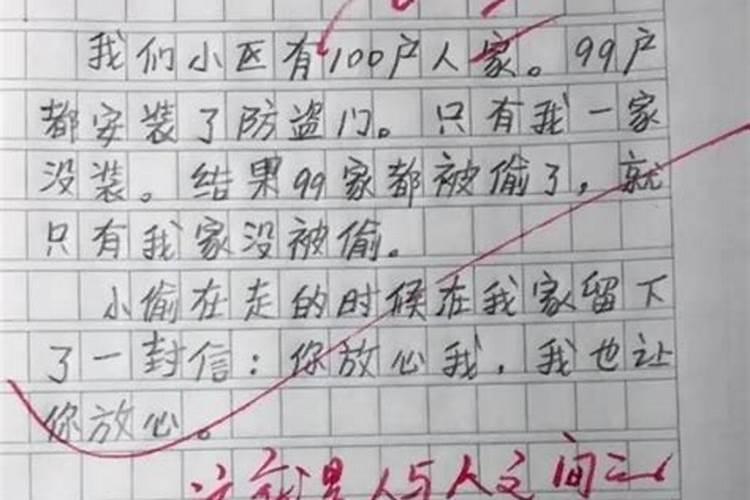 我们小区有100户人家。99户
都安装了防盗门。只有我一家
没装。结果99家都被偷了，就
只有我家没被偷。
小偷在走的时候在我家留下
了一封信：你放心我，我也让
你放心。
这就是人与人之间